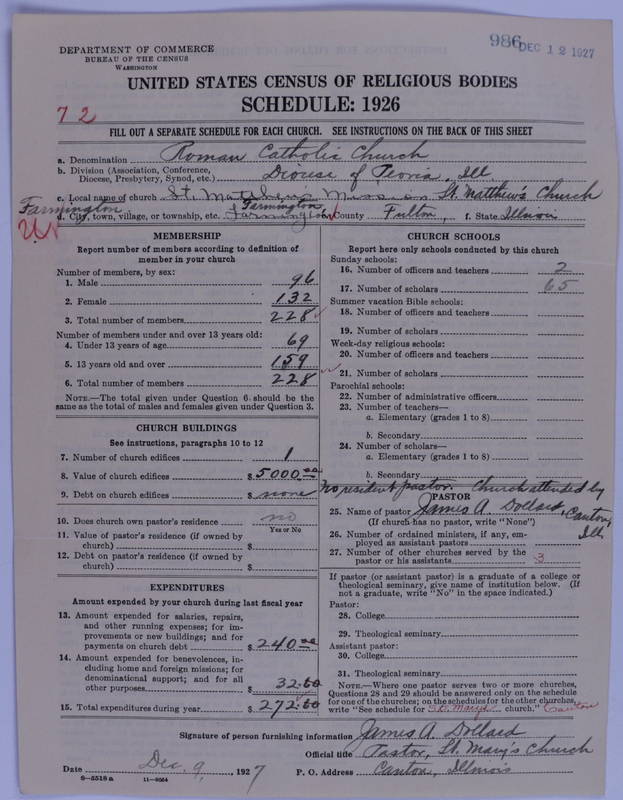 986 DEC 12 1927
DEPARTMENT OF COMMERCE
BUREAU OF THE CENSUS
WASHINGTON
UNITED STATES CENSUS OF RELIGIOUS BODIES
SCHEDULE: 1926
72
FILL OUT A SEPARATE SCHEDULE FOR EACH CHURCH. SEE INSTRUCTIONS ON THE BACK OF THIS SHEET
a. Denomination Roman Catholic Church
b. Division (Association, Conference, Diocese, Presbytery, Synod, etc.) Diocese of Peoria, Ill.
c. Local name of church St. Matthew's Mission St. Matthew's Church
Farmington Farmington
d. City, town, village, or township, etc. Farmington County Fulton f. State Illinois
MEMBERSHIP
Report number of members according to definition of
member in your church
Number of members, by sex:
1. Male 96
2. Female 132
3. Total number of members 228
Number of members under and over 13 years old:
4. Under 13 years of age 69
5. 13 years old and over 159
6. Total number of members 228
NOTE.—The total given under Question 6 should be the
same as the total of males and females given under Question 3.
CHURCH BUILDINGS
See instructions, paragraphs 10 to 12
7. Number of church edifices 1
8. Value of church edifices $ 5000.00
9. Debt on church edifices $ none
10. Does church own pastor's residence no
Yes or No
11. Value of pastor's residence (if owned by
church) $
12. Debt on pastor's residence (if owned by
church) $
EXPENDITURES
Amount expended by your church during last fiscal year
13. Amount expended for salaries, repairs,
and other running expenses; for im-
provements or new buildings; and for
payments on church debt $ 240.00
14. Amount expended for benevolences, in-
cluding home and foreign missions; for
denominational support; and for all
other purposes $ 32.60
15. Total expenditures during year $ 272.60
CHURCH SCHOOLS
Report here only schools conducted by this church
Sunday schools:
16. Number of officers and teachers 2
17. Number of scholars 65
Summer vacation Bible schools:
18. Number of officers and teachers
19. Number of scholars
Week-day religious schools:
20. Number of officers and teachers
21. Number of scholars
Parochial schools:
22. Number of administrative officers
23. Number of teachers—
a. Elementary (grades 1 to 8)
b. Secondary
24. Number of scholars—
a. Elementary (grades 1 to 8)
b. Secondary
No resident pastor. Church attended by
PASTOR
25. Name of pastor James A. Dollard, Canton, Ill.
(If church has no pastor, write "None")
26. Number of ordained ministers, if any, em-
ployed as assistant pastors
27. Number of other churches served by the
pastor or his assistants 3
If pastor (or assistant pastor) is a graduate of a college or
theological seminary, give name of institution below. (If
not a graduate, write "No" in the space indicated.)
Pastor:
28. College
29. Theological seminary
Assistant pastor:
30. College
31. Theological seminary
NOTE.—Where one pastor serves two or more churches,
Questions 28 and 29 should be answered only on the schedule
for one of the churches; on the schedules for the other churches,
write "See schedule for St. Mary's church." Canton
Signature of person furnishing information James A. Dollard
Official title Pastor, St. Mary's Church
Date Dec. 9, 1927 P. O. Address Canton, Illinois
8-5518a 11-9054